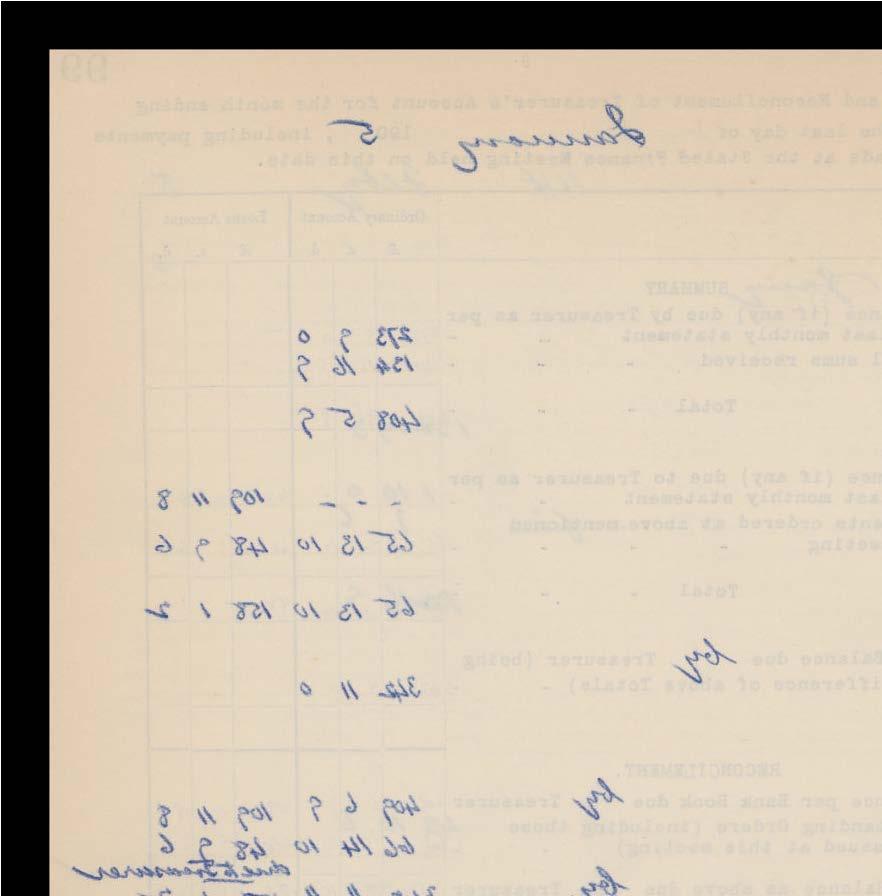 99
and Reconcilement of Treasurer's Account for the month ending
he last day of January 1905, including payments
ade at the Stated Finance Meeting held on this date.
Ordinary Account Loans Account
£ s d £ s d
SUMMARY
nce (if any) due by Treasurer as per
last monthly statement - - 273 9 0
l sums received - - - 134 16 9
Total - - 408 5 9
nce (if any) due to Treasurer as per
last monthly statement - - - - - 109 11 8
ents ordered at above-mentioned
eeting - - - - 65 13 10 48 9 6
Total - - - 65 13 10 158 1 2
Balance due by Treasurer (being
difference of above Totals) - - 342 11 0
RECONCILEMENT.
nce per Bank Book due by Treasurer 409 6 9 109 11 8
tanding Orders (including those
ssued at this meeting) - - 66 14 10 48 9 6
due to Treasurer
Balance as above due by Treasurer